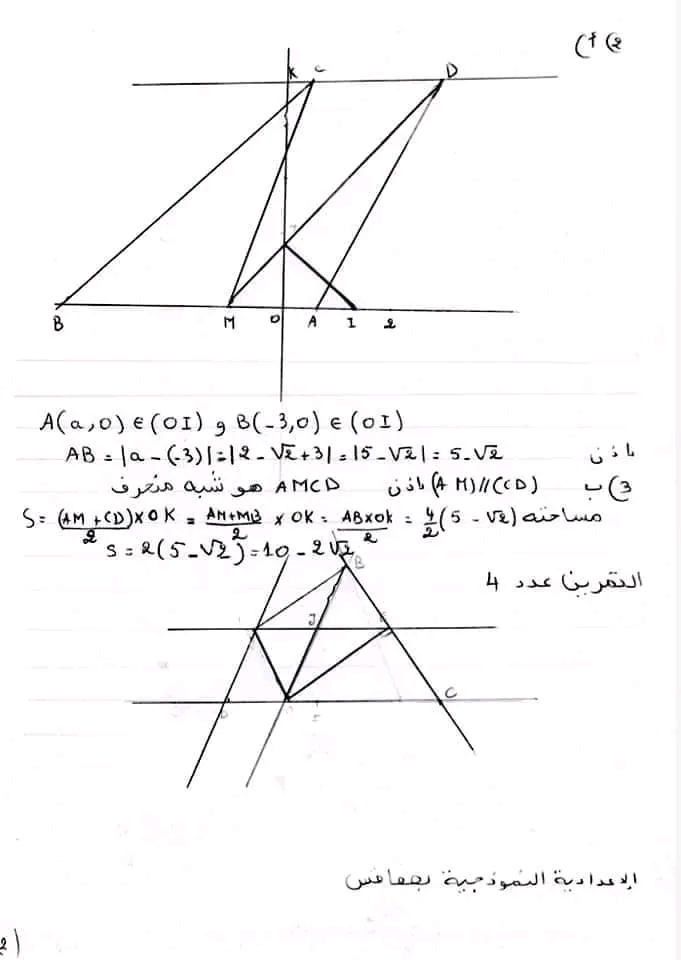 2) أ)
K C D
B M O A I 2
A(a,0) ∈ (OI) و B(-3,0) ∈ (OI)
باذن AB = |a - (-3)| = |2 - √2 + 3| = |5 - √2| = 5 - √2
3) ب (AM) // (CD) باذن AMCD هو شبه منحرف
مساحته S = (AM + CD)×OK / 2 = AM+MB / 2 × OK = AB×OK / 2 = 4/2 (5 - √2)
S = 2(5 - √2) = 10 - 2√2
التمرين عدد 4
B
J
C
الإعدادية النموذجية بصفاقس